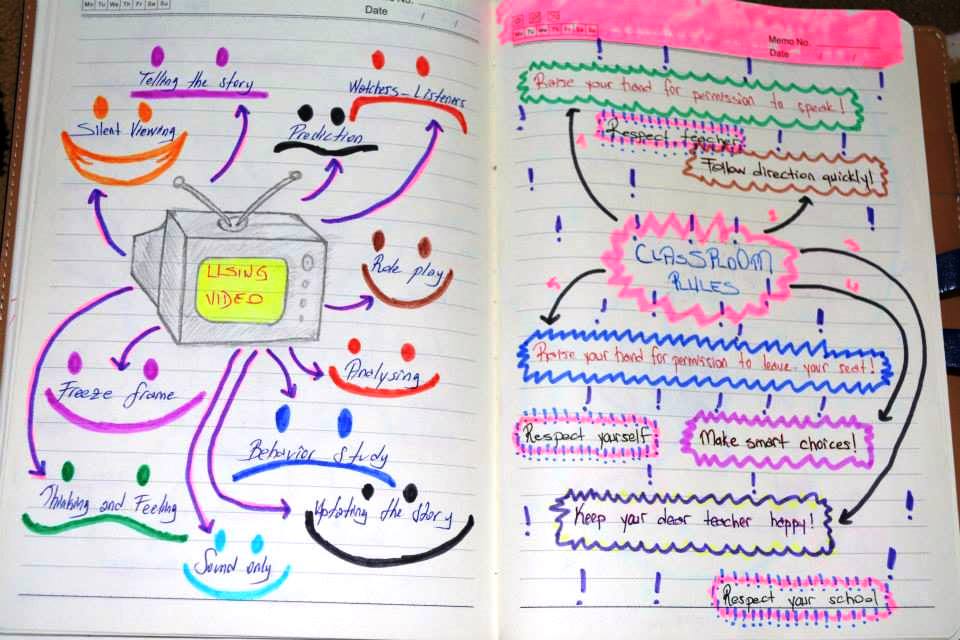 Mo Tu We Th Fr Sa Su
Memo No.
Date / /
Telling the story
Watchers-Listeners
Silent Viewing
Prediction
USING
VIDEO
Role play
Analysing
Freeze frame
Behavior Study
Thinking and Feeling
Updating the story
Sound only
Mo Tu We Th Fr Sa Su
Memo No.
Date / /
Raise your hand for permission to speak!
Respect teacher
Follow direction quickly!
CLASSROOM
RULES
Raise your hand for permission to leave your seat!
Respect yourself
Make smart choices!
Keep your dear teacher happy!
Respect your school